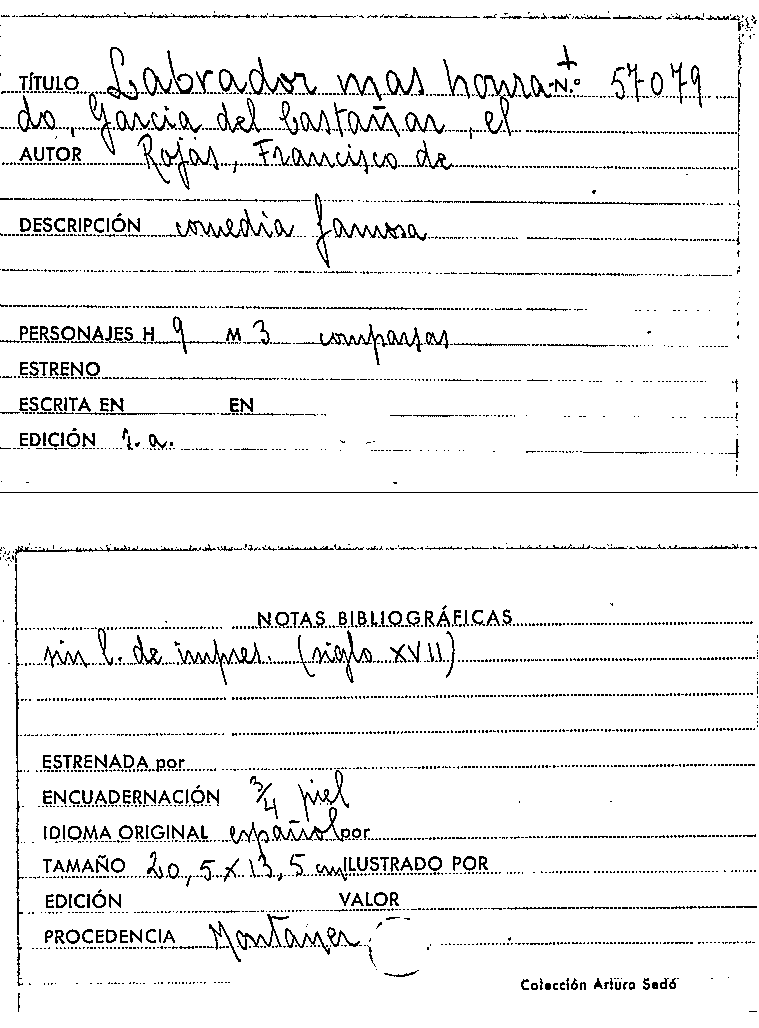 TÍTULO Labrador mas honra- N.º 57079
do, Garcia del Castañar, el
AUTOR Rojas, Francisco de
DESCRIPCIÓN comedia famosa
PERSONAJES H 9 M 3 comparsas
ESTRENO
ESCRITA EN EN
EDICIÓN s.a.
NOTAS BIBLIOGRÁFICAS
sin l. de impres. (siglo XVII)
ESTRENADA por
ENCUADERNACIÓN 3/4 piel
IDIOMA ORIGINAL español por
TAMAÑO 20,5 x 13,5 cm ILUSTRADO POR
EDICIÓN VALOR
PROCEDENCIA Montaner
Colección Arturo Sedó